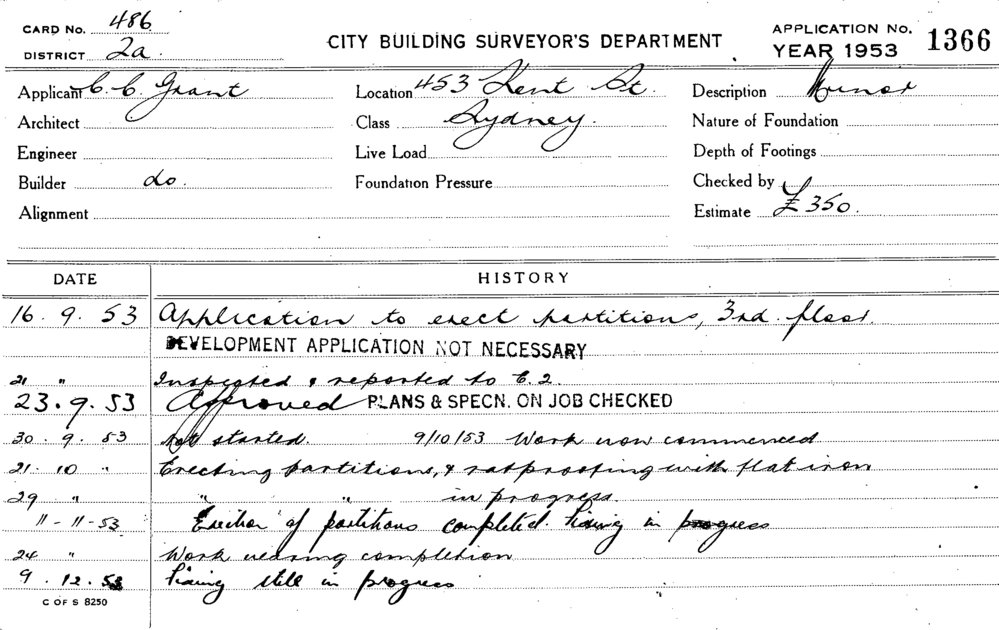 CARD No. 486
DISTRICT 2a.
CITY BUILDING SURVEYOR'S DEPARTMENT
APPLICATION No. 1366
YEAR 1953
Applicant C. C. Grant
Location 453 Kent St.
Description Minor
Architect
Class Sydney.
Nature of Foundation
Engineer
Live Load
Depth of Footings
Builder do.
Foundation Pressure
Checked by
Alignment
Estimate £350.
DATE HISTORY
16. 9. 53 Application to erect partitions, 3rd. floor.
DEVELOPMENT APPLICATION NOT NECESSARY
21 " Inspected & reported to E. 2.
23. 9. 53 Approved PLANS & SPECN. ON JOB CHECKED
30. 9. 53 Not started. 9/10/53 Work now commenced
21. 10 " Erecting partitions, & ratproofing with flat iron
29 " " " in progress.
11-11-53 Erection of partitions completed. in progress
24 " Work nearing completion
9. 12. 53 still in progress
C OF S 8250